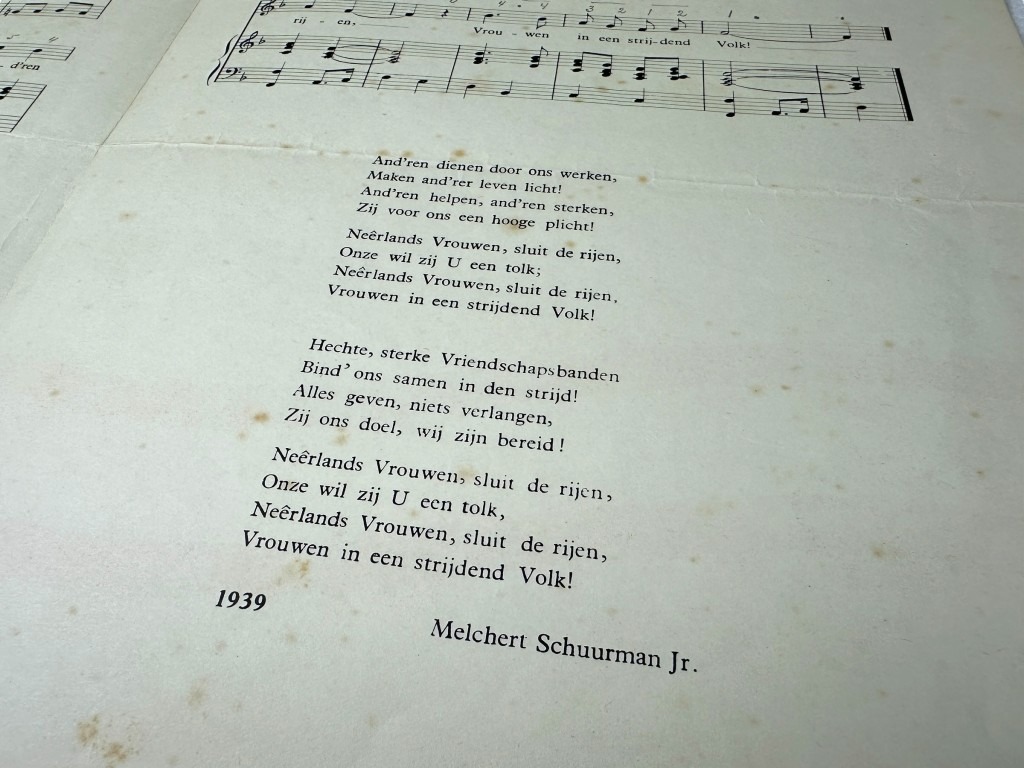 rij - en,
Vrou - wen in een strij-dend Volk!
d'ren
And'ren dienen door ons werken,
Maken and'rer leven licht!
And'ren helpen, and'ren sterken,
Zij voor ons een hooge plicht!
Neêrlands Vrouwen, sluit de rijen,
Onze wil zij U een tolk;
Neêrlands Vrouwen, sluit de rijen,
Vrouwen in een strijdend Volk!
Hechte, sterke Vriendschapsbanden
Bind' ons samen in den strijd!
Alles geven, niets verlangen,
Zij ons doel, wij zijn bereid!
Neêrlands Vrouwen, sluit de rijen,
Onze wil zij U een tolk,
Neêrlands Vrouwen, sluit de rijen,
Vrouwen in een strijdend Volk!
1939
Melchert Schuurman Jr.